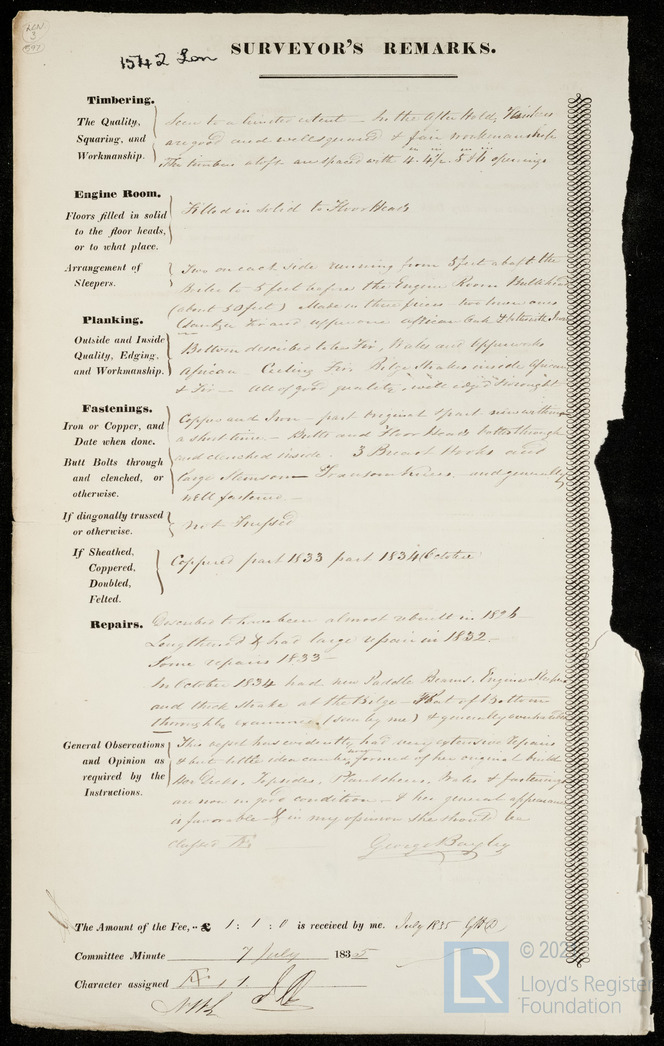 LON
3
1542 Lon
SURVEYOR'S REMARKS.
Timbering.
The Quality,
Squaring, and
Workmanship.
Seen to a limited extent — In the After Hold, Timbers
are good and well squared & fair workmanship
The timbers aloft are spaced with 4. 4½. 5 & 6 openings
Engine Room.
Floors filled in solid
to the floor heads,
or to what place.
Filled in solid to Floor Heads
Arrangement of
Sleepers.
Two on each side running from 5 feet abaft the
Boiler to 5 feet before the Engine Room Bulkhead
(about 50 feet) Made in three pieces two lower ones
Dantzic Fir and upper one African Oak
Planking.
Outside and Inside
Quality, Edging,
and Workmanship.
Bottom described to be Fir, Wales and Upperworks
African — Ceiling Fir Bilge Strakes inside African
& Fir — All of good quality, well edged & wrought
Fastenings.
Iron or Copper, and
Date when done.
Butt Bolts through
and clenched, or
otherwise.
Copper and Iron — part original & part new within
a short time — Butts and Floor Heads bolted through
and clenched inside. 3 Breast Hooks and
large Stemson Transom Knees and generally
well fastened —
If diagonally trussed
or otherwise.
not Trussed
If Sheathed,
Coppered,
Doubled,
Felted.
Coppered part 1833 part 1834 October
Repairs.
Described to have been almost rebuilt in 1826
Lengthened & had large repair in 1832 —
Some repairs 1833 —
In October 1834 had new Paddle Beams, Engine Sleepers
and thick Strake at the Bilge — Flat of Bottom
thoroughly examined (seen by me) & generally overhauled
General Obserations
and Opinion as
required by the
Instructions.
This vessel has evidently had very extensive repairs
& but little idea can be now formed of her original build
Her Decks, Topsides, Planksheers, Wales & fastenings
are now in good condition — & her general appearance
is favorable & in my opinion she should be
classed Æ
George Bayley
The Amount of the Fee, -- £ 1 : 1 : 0 is received by me. July 1835
Committee Minute 7 July 1835
Character assigned Æ 1
© 202
LR
Lloyd's Register
Foundation